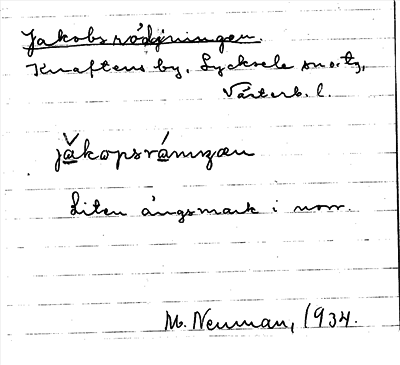 Jakobsrödjningen.
Knaftens by, Lycksele sn o. tg,
Västerb. l.
jakopsrámnȥæn
Liten ängsmark i norr.
M. Neuman, 1934.